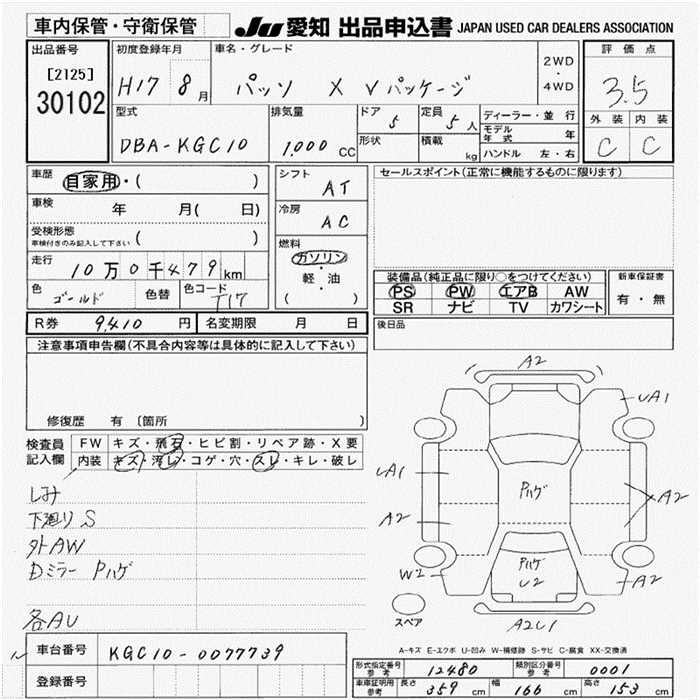 車内保管・守衛保管
JU 愛知 出品申込書 JAPAN USED CAR DEALERS ASSOCIATION
出品番号
[2125]
30102
初度登録年月
H17 8月
車名・グレード
パッソ X Vパッケージ
2WD
・
4WD
評価点
3.5
外装 内装
C C
型式
DBA-KGC10
排気量
1,000 CC
ドア 5
形状
定員 5人
積載 kg
ディーラー・並行
モデル年式 年
ハンドル 左・右
車歴 自家用・( )
車検 年 月( 日)
受検形態
車検付きのみ記入して下さい ( )
走行 10万0千479km
色 ゴールド 色替 色コード T17
シフト AT
冷房 AC
燃料
ガソリン
・
軽・油
( )
セールスポイント(正常に機能するものに限ります)
装備品(純正品に限り○をつけてください)
PS PW エアB AW
SR ナビ TV カワシート
新車保証書
有・無
後日品
R券 9,410 円 名変期限 月 日
注意事項申告欄(不具合内容等は具体的に記入して下さい)
修復歴 有 〔箇所 〕
検査員
記入欄
FW キズ・飛石・ヒビ割・リペア跡・X要
内装 キズ・汚レ・コゲ・穴・スレ・キレ・破レ
しみ
下廻りS
外AW
Dミラー Pハゲ
各AU
A2
UA1
UA1
A2
Pハゲ
A2
W2
Pハゲ
U2
A2
A2U1
スペア
A-キズ E-エクボ U-凹み W-補修跡 S-サビ C-腐食 XX-交換済
車台番号 KGC10-0077739
登録番号
形式指定番号参考 12480 類別区分番号参考 0001
車庫証明用参考 長さ 359 cm 幅 166 cm 高さ 153 cm